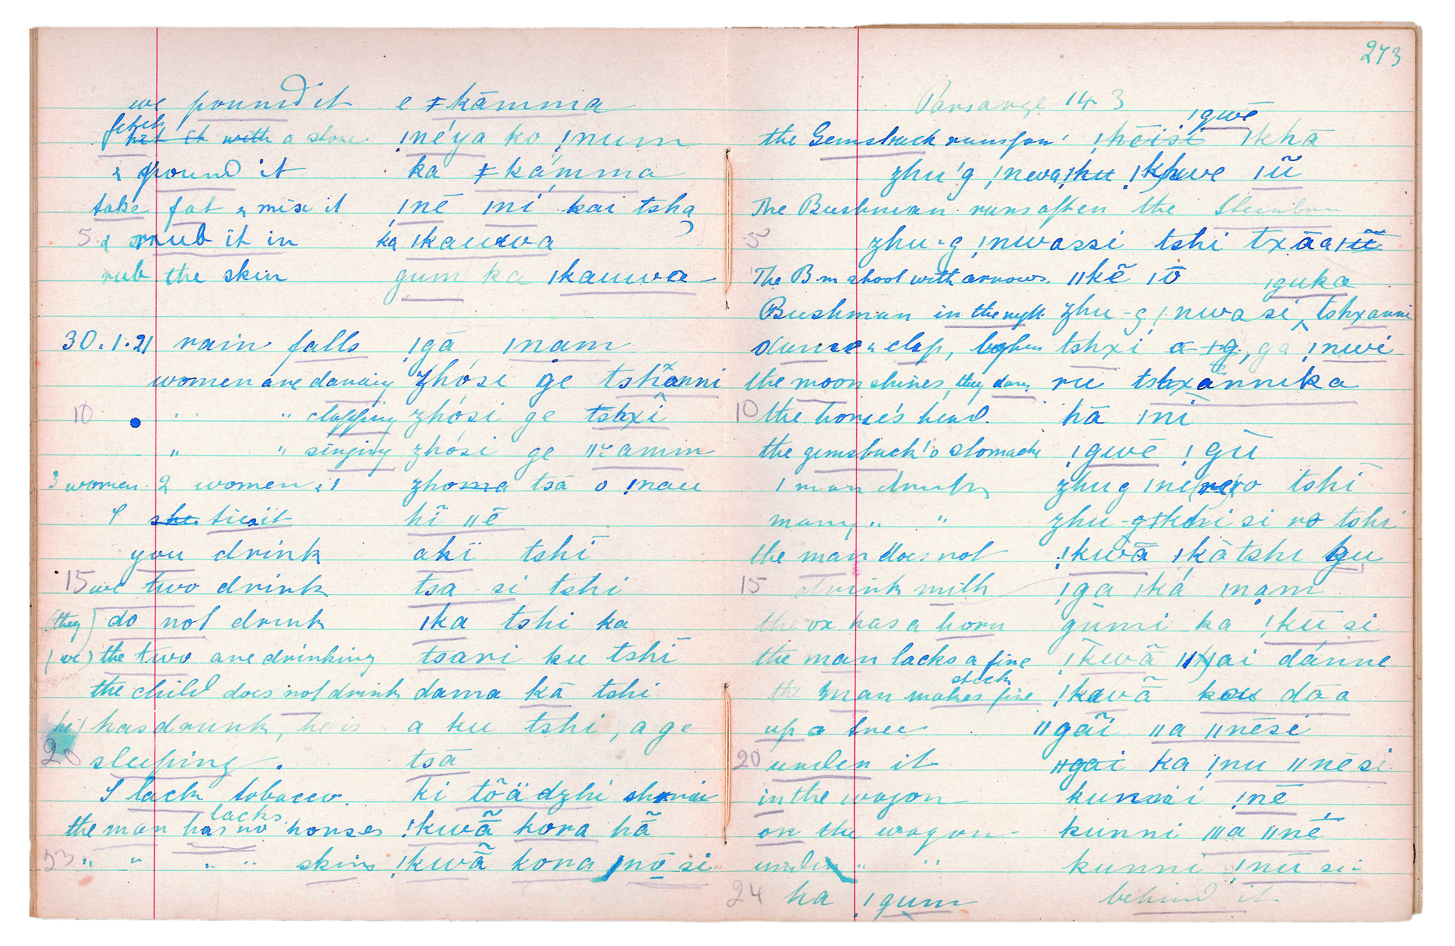 we pound it e ǂkāmma
fetch hit it with a stone ǃnéya ko ǃnum
& pound it ka ǂkámma
take fat & mix it ǃnē ǀní kai tsha
5 & rub it in ka ǀkauwa
rub the skin gum ka ǀkauwa
30.1.21 rain falls ǀgā ǀnam
women are dancing zhósi ge tshxanni
10 " " clapping zhósi ge tshxî
" " singing zhósi ge ǁamm
3 women. 2 women zhoma tsā o ǃnau
I she tie it hī ǁē
you drink akī tshī
15 we two drink tsa si tshi
(they) do not drink ǀka tshi ka
(we) the two are drinking tsari ku tshī
the child does not drink dama kā tshi
he has drunk, he is a ku tshi, a ge
20 sleeping. tsā
I lack tobacco. ki tõädzhi
lacks
the man has no horses ǃkwã kora hã
23 " " " " skins ǃkwã kora ǀnō si
273
Parsange 14 3
ǀgwē
the Gemsbuck runs far ǀkha
zhu'g ǃnwa ǀũ
The Bushman runs after the Steinbu
5 zhu-g ǃnwassi tshi txãa
The Bm shoot with arrows. ǁkē ǀō
ǀguka
Bushman in the night zhu-g ǃnwa si, tshxanni
dance & clap, when tshxi a +g, ga ǃnwi
the moon shines, they danc ru tshxannika
10 the horse's head. hā ǀnī
the gemsbuck's stomach ǃgwē ǃgū
1 man drinks zhug ǀne ro tshī
many " " si ro tshi
the man does not ǃkwã ǀkā tshi gu
15 drink milk ǀga ǀká ǀnam
the ox has a horn gūmi ka ǃkū si
the man lacks a fire ǃkwã ǁkai dánne
stick
the man makes fire ǃkwã kou daa
up a tree ǁgãi ǁa ǁnēsi
20 under it ǁgai ka ǃnu ǁnēsi
in the wagon kunni ǃnē
on the wagon kunni ǁa ǁnē
under " " kunni ǃnū si
24 ha ǀgum behind it